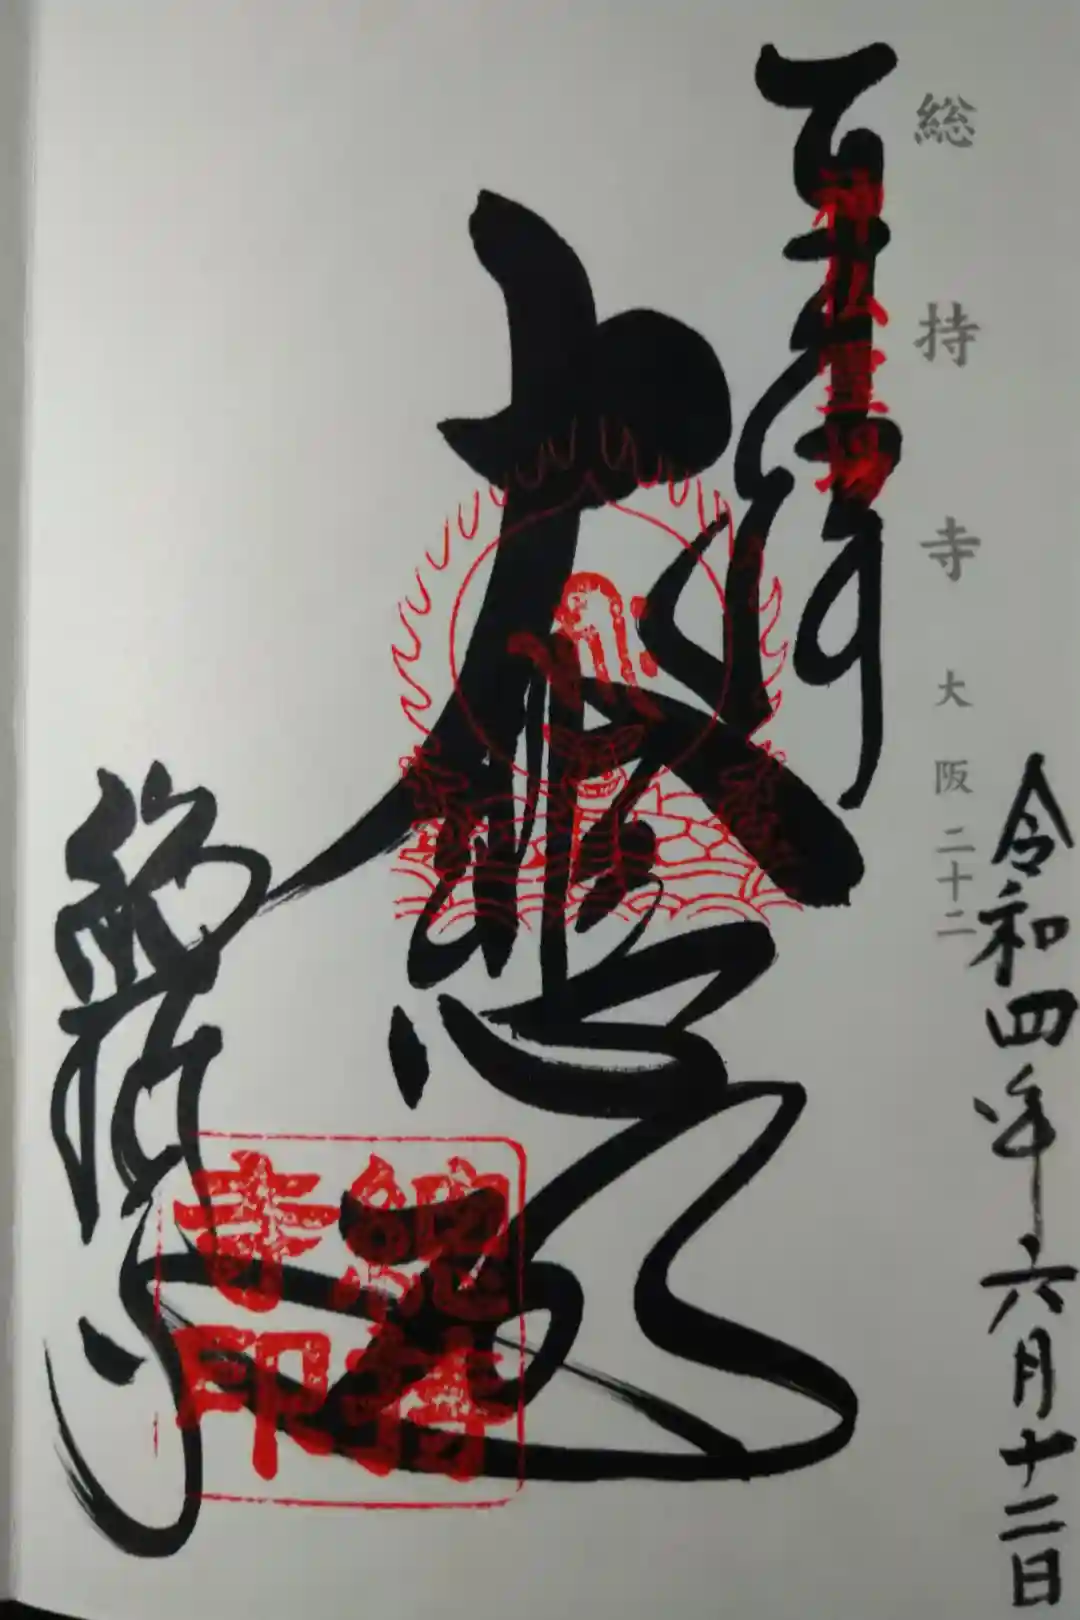 総持寺 大阪二十二
令和四年六月十二日
奉拝
神仏霊場
大悲殿
総持寺
総持寺印